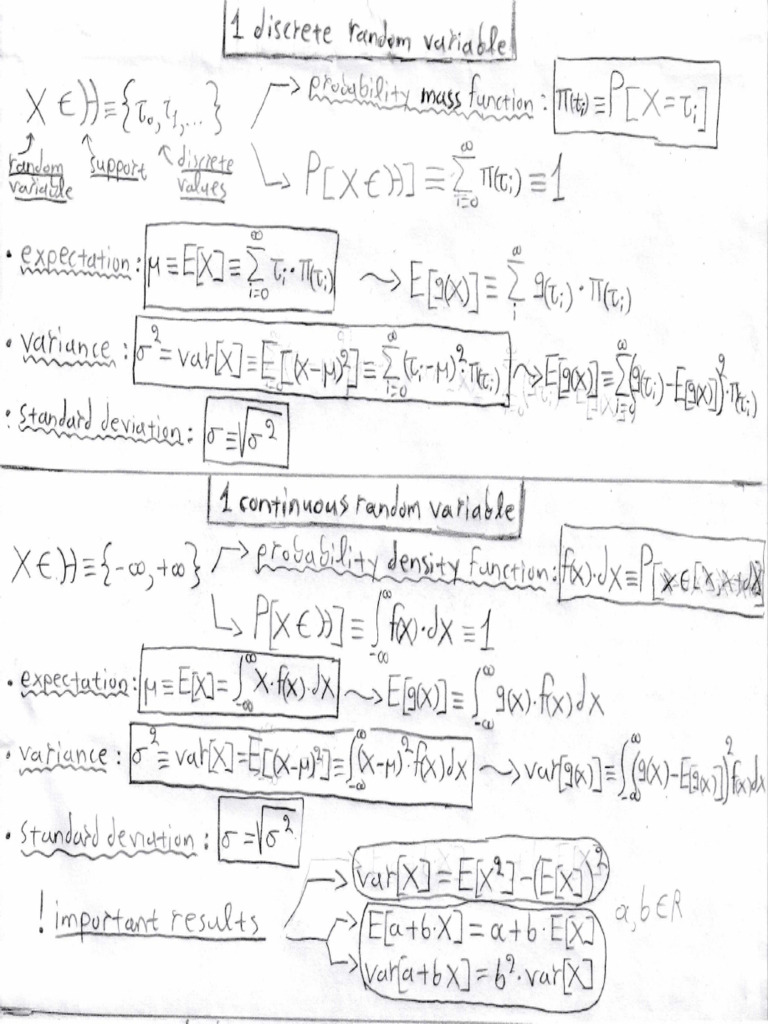 1 discrete random variable
X ∈ H ≡ {τ₀, τ₁, ...} → probability mass function : π(τᵢ) ≡ P[X = τᵢ]
random variable support discrete values
↳ P[X ∈ H] ≡ ∑_{i=0}^{∞} π(τᵢ) ≡ 1
• expectation : μ ≡ E[X] ≡ ∑_{i=0}^{∞} τᵢ · π(τᵢ) ⇝ E[g(X)] ≡ ∑_{i}^{∞} g(τᵢ) · π(τᵢ)
• variance : σ² ≡ var[X] ≡ E[(X-μ)²] ≡ ∑_{i=0}^{∞} (τᵢ-μ)² · π(τᵢ) ⇝ E[g(X)] ≡ ∑_{i=0}^{∞} (g(τᵢ) - E[g(X)])² · π(τᵢ)
• standard deviation : σ ≡ √σ²
1 continuous random variable
X ∈ H ≡ {-∞, +∞} → probability density function : f(x)·dx ≡ P[X ∈ [x, x+dx]
↳ P[X ∈ H] ≡ ∫_{-∞}^{∞} f(x)·dx ≡ 1
• expectation : μ ≡ E[X] = ∫_{-∞}^{∞} x·f(x)·dx ⇝ E[g(X)] ≡ ∫_{-∞}^{∞} g(x)·f(x)dx
• variance : σ² ≡ var[X] = E[(X-μ)²] ≡ ∫_{-∞}^{∞} (x-μ)²·f(x)dx ⇝ var[g(X)] ≡ ∫_{-∞}^{∞} (g(x) - E[g(X)])² f(x)dx
• standard deviation : σ = √σ²
! important results → var[X] = E[X²] - (E[X])²
→ E[a+b·X] = a + b · E[X] a, b ∈ R
→ var[a+bX] = b²·var[X]